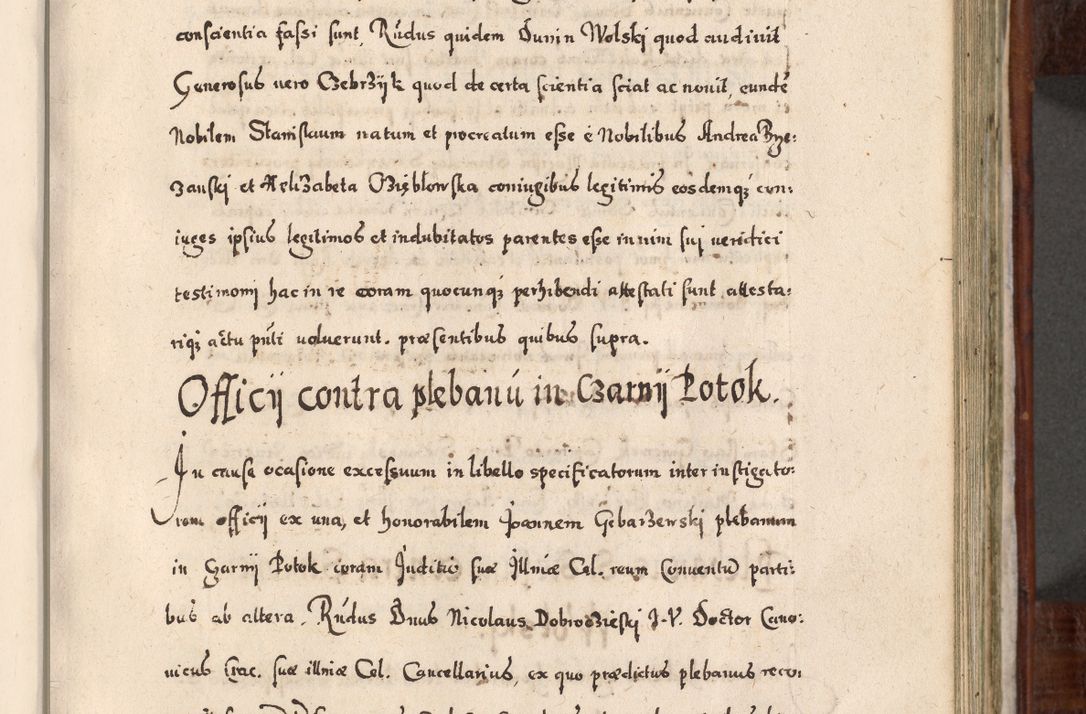 conscientia fassi sunt, Rndus quidem Dunin Wolskj quod audiuit
Generosus uero CzebrZyk quod de certa scientia sciat ac nouit, eundē
Nobilem Stanislaum natum et procreatum esse é Nobilibus Andrea Brze:
Zanskj et HeliZabeta OZiębłowska coniugibus legitimis eosdemqȝ con:
iuges ipsius legitimos et indubitatos parentes esse in uim suj ueridici
testimonij hac in re coram quocunqȝ perhibendi attestati sunt attesta:
riqȝ actu pnti uoluerunt. præsentibus quibus supra.
Officij contra plebanū in Czarnij Potok.
In causa ocasione excessuum in libello specificatorum inter instigato:
rem officij ex una, et honorabilem Joannem GębarZewskj plebanum
in Czarnij Potok coram Juditio suæ Illmæ Cel. reum Conuentū parti:
bus ab altera. Rndus Dnus Nicolaus DobrociZieskj J.V. Doctor Cano:
nicus Crac. suæ illmæ Cel. Cancellarius, ex quo prædictus plebanus reco: